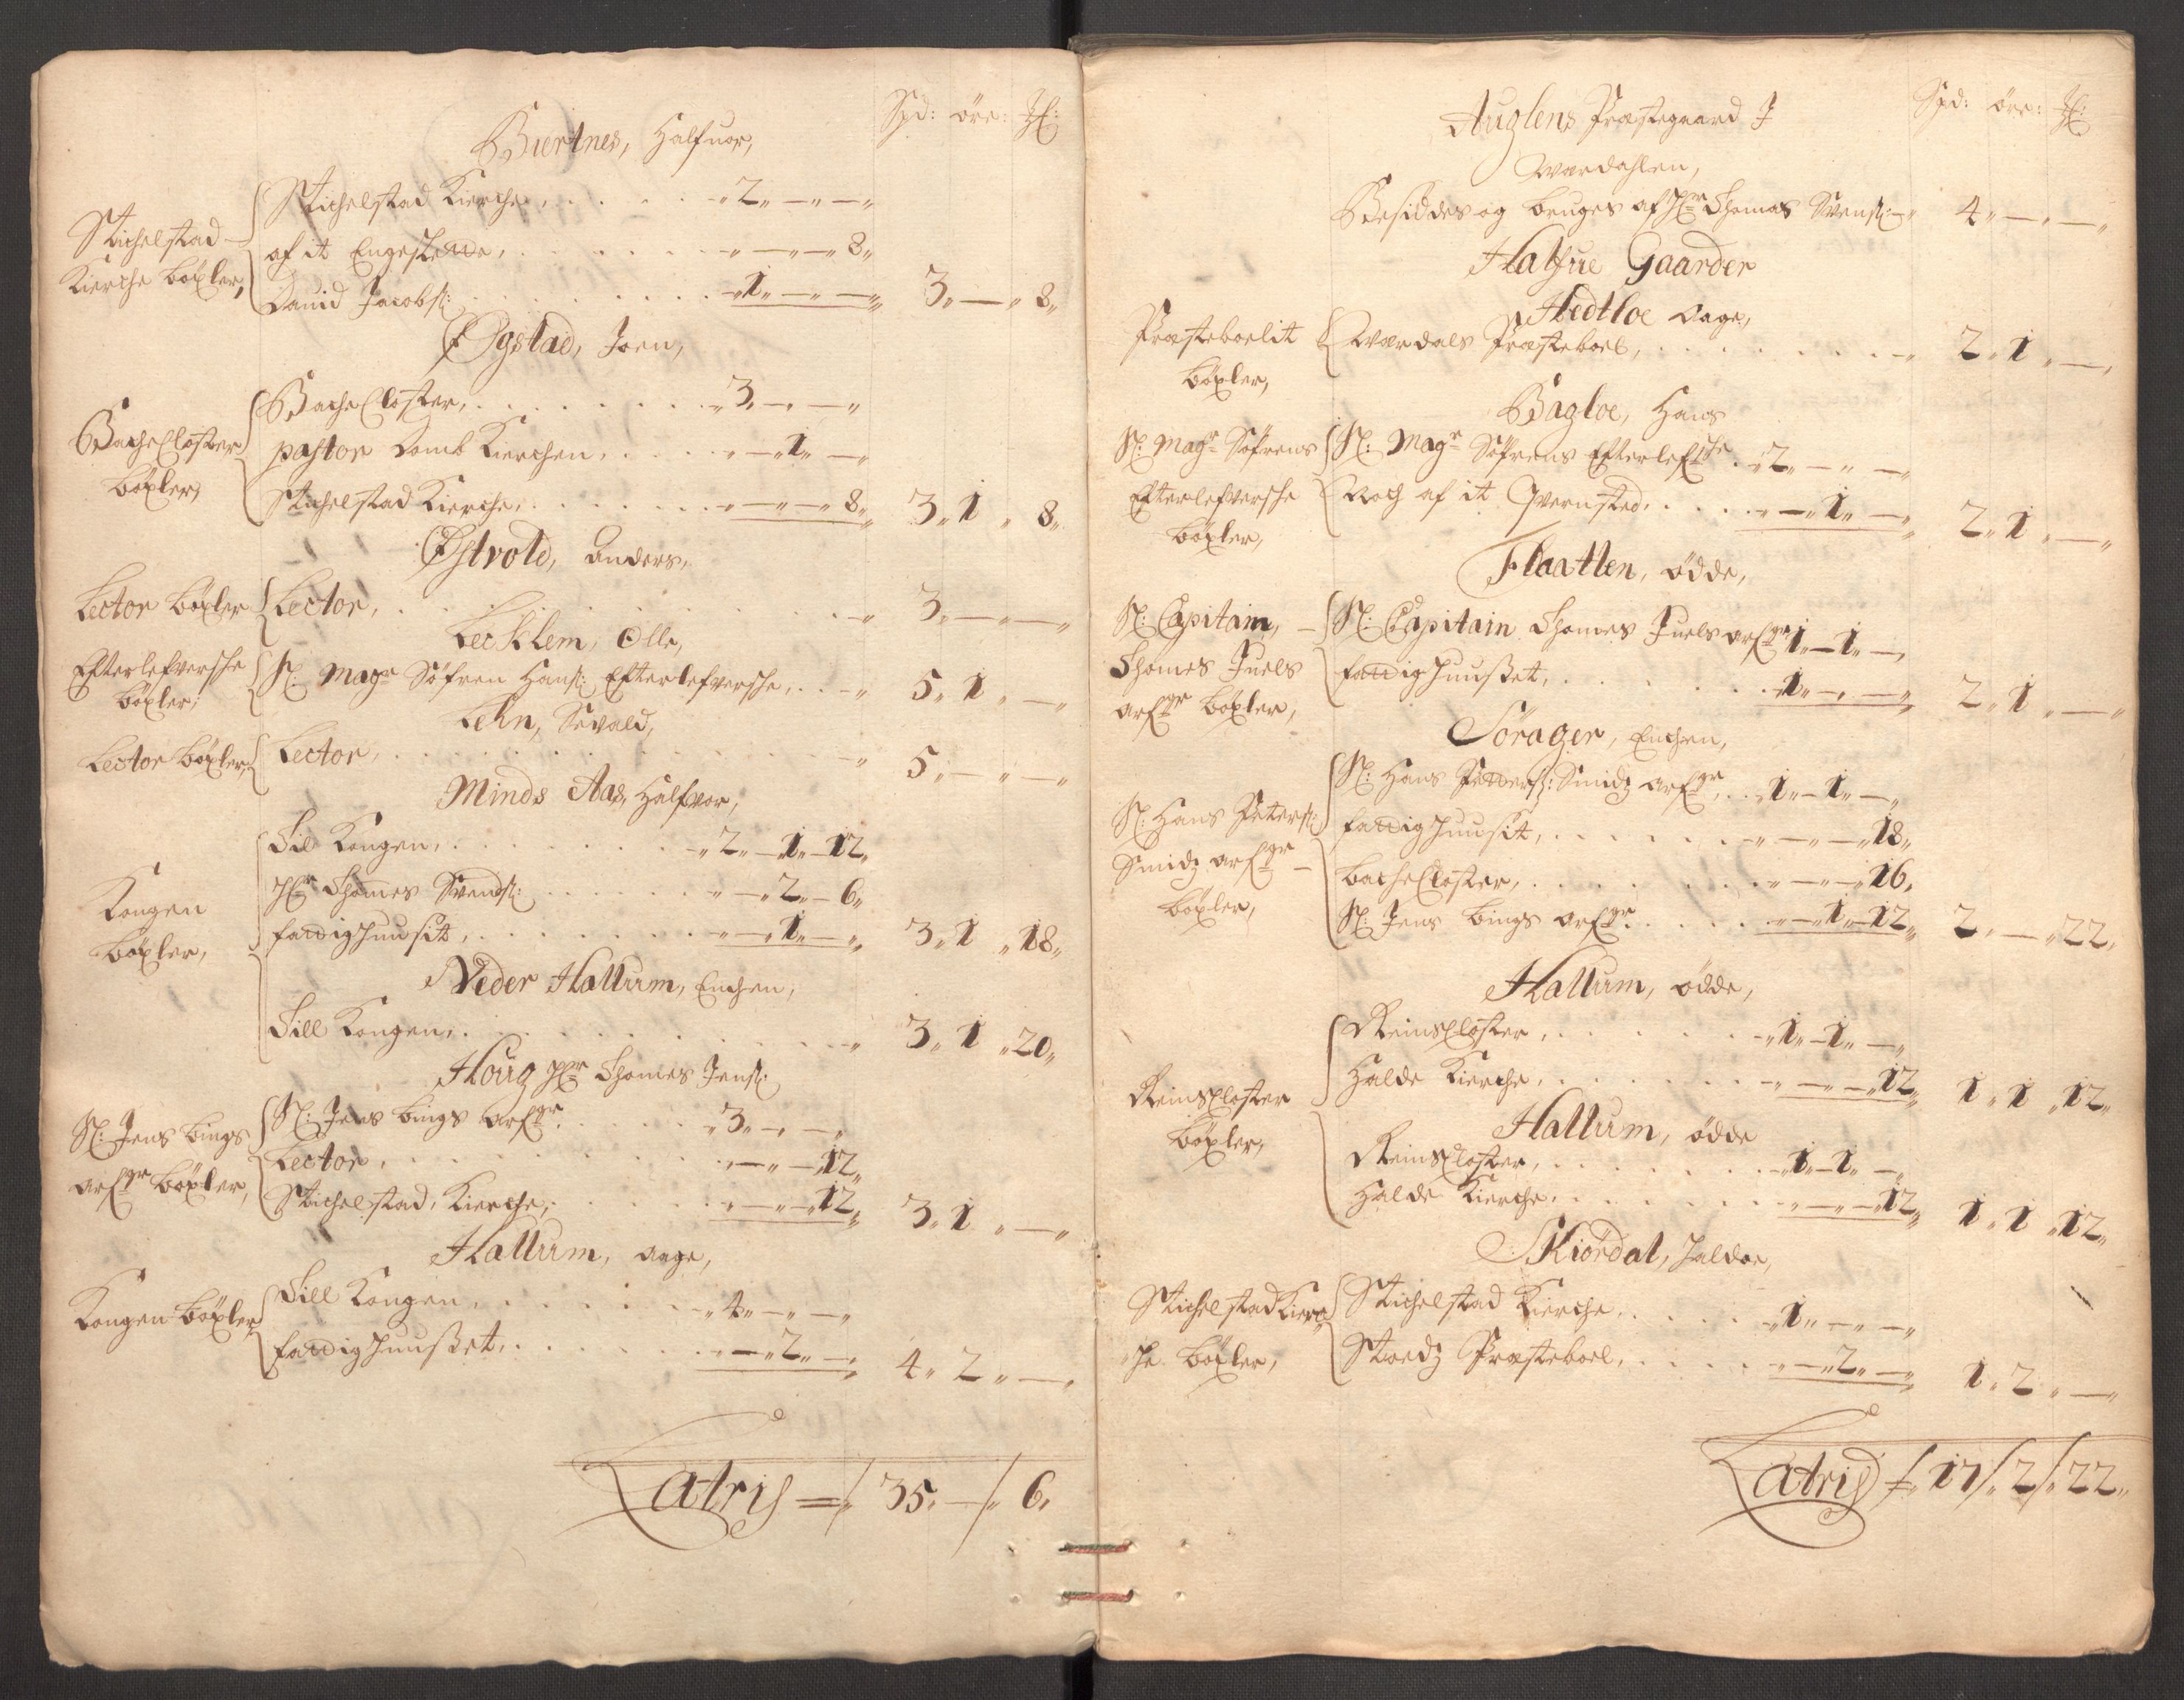 Spd: öre: ꝉ:
Biertnes, Halfuor,
Stichelstad Kierche böxler,
Stichelstad Kierche, . . . . . „2„ — „ — „
af it Engeslette, . . . . . „ — „ — „ 8„
Dauid Jacobs: . . . . . „1„ — „ — „ 3„ — „ 8„
Øgstad, Joen,
Bache Closter böxler,
Bache Closter, . . . . . „3„ — „ — „
pastor Domb Kierchen, . . . . „ — „1„ — „
Stichelstad Kierche, . . . . . „ — „ — „ 8„ 3„ 1 „ 8„
Østvold, Anders,
Lector böxler Lector, . . . . . 3„ — „ — „
Lecklem, Olle,
Efterlefversche böxler,
Sl: Magr Söfren Hans: Efterlefversche, . . 5„ 1 „ — „
Lehn, Sevald,
Lector böxler, Lector, . . . . . 5„ — „ — „
Minds Aas, Halfvor,
Kongen böxler,
Till Kongen, . . . . . „2„ — 1„ — 12„
Hr Thomes Svends: . . . . . „ — „2„ — 6„
fattighuusit, . . . . . „ — „1„ — „ 3„ 1 „ 18„
Neder Hallum, Enchen,
Till Kongen, . . . . . 3„ 1 „ 20„
Houg Hr Thomes Jens:
Sl: Jens Bings arfgr böxler,
Sl: Jens Bings Arfgr . . . . . „3„ — „ — „
Lector, . . . . . „ — „ — „12„
Stichelstad, Kierche, . . . . . „ — „ — „12„ 3„ 1 „ — „
Hallum, Aage,
Kongen böxler
Till Kongen, . . . . . „4„ — „ — „
fattighuusset, . . . . . „ — „2„ — „ 4„ 2 „ — „
Latris = /„ 35„ — /„ 6„
Spd: öre: ꝉ:
Auglens Præstegaard J
Wærdahlen,
Besiddes og bruges af Hr Thomas Svens: „ 4„ — „ — „
Halfue Gaarder
Hedtloe Aage,
Præsteboelit böxler,
Wærdals Præsteboel, . . . . . „ 2„ 1 „ — „
Bagloe, Hans
Sl: Magr Söfrens Efterlefversche böxler,
Sl: Magr Söfrens Efterlefsche . „2„ — „ — „
Noch af it Qvernsted, . . . . . „ — „1„ — „ 2„ 1 „ — „
Flaatten, ödde,
Sl: Capitain, Thomes Juels arfgr böxler,
Sl: Capitain Thomes Juels arfgr 1„ — 1„ — „
fattighuusset, . . . . . „1„ — „ — „ 2„ 1 „ — „
Sörager, Enchen,
Sl: Hans Peters: Smidz arfgr böxler,
Sl: Hans Petters: Smidz arfgr, . . „1„ — 1„ — „
fattighuusit, . . . . . „ — „ — „18„
bacheCloster, . . . . . „ — „ — „16„
Sl: Jens Bings arfgr . . . . . „ — „1„ — 12„ 2„ — „22„
Hallum, ödde,
Reinscloster böxler,
Reinscloster, . . . . . „1„ — 1„ — „
Halde Kierche, . . . . . „ — „ — „12„ 1„ 1 „12„
Hallum, ödde
Reinscloster, . . . . . „1„ — 1„ — „
Halde Kierche, . . . . . „ — „ — „12„ 1„ 1 „12„
Skiördal, Haldor,
Stichelstad Kierche böxler,
Stichelstad Kierche, . . . . . „1„ — „ — „
Stoedz Præsteboel, . . . . . „ — „2„ — „ 1„ 2„ — „
Latris /„ 17/„ 2/„ 22„